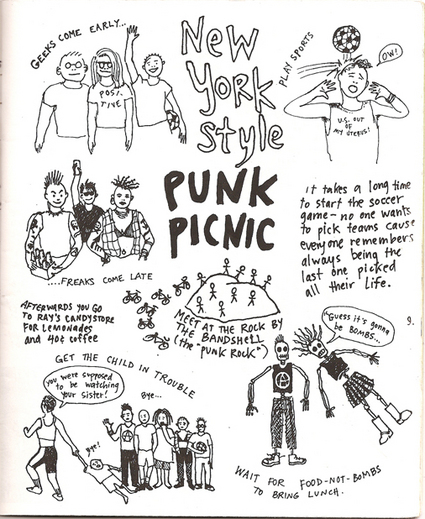 GEEKS COME EARLY...
NEW
YORK
Style
PUNK
PICNIC
POSI-
TIVE
PLAY SPORTS
OW!
U.S. OUT
OF
MY UTERUS!
....FREAKS COME LATE
it takes a long time
to start the soccer
game - no one wants
to pick teams cause
everyone remembers
always being the
last one picked
all their life.
AFTERWARDS YOU GO
TO RAY'S CANDYSTORE
FOR LEMONADES
and 40¢ coffee
MEET AT THE ROCK BY
THE BANDSHELL
(the "PUNK ROCK")
"Guess it's gonna
be BOMBS...
9.
GET THE CHILD IN TROUBLE
you were supposed
to be watching
your sister!
Bye...
Bye!
WAIT FOR FOOD-NOT-BOMBS
TO BRING LUNCH.